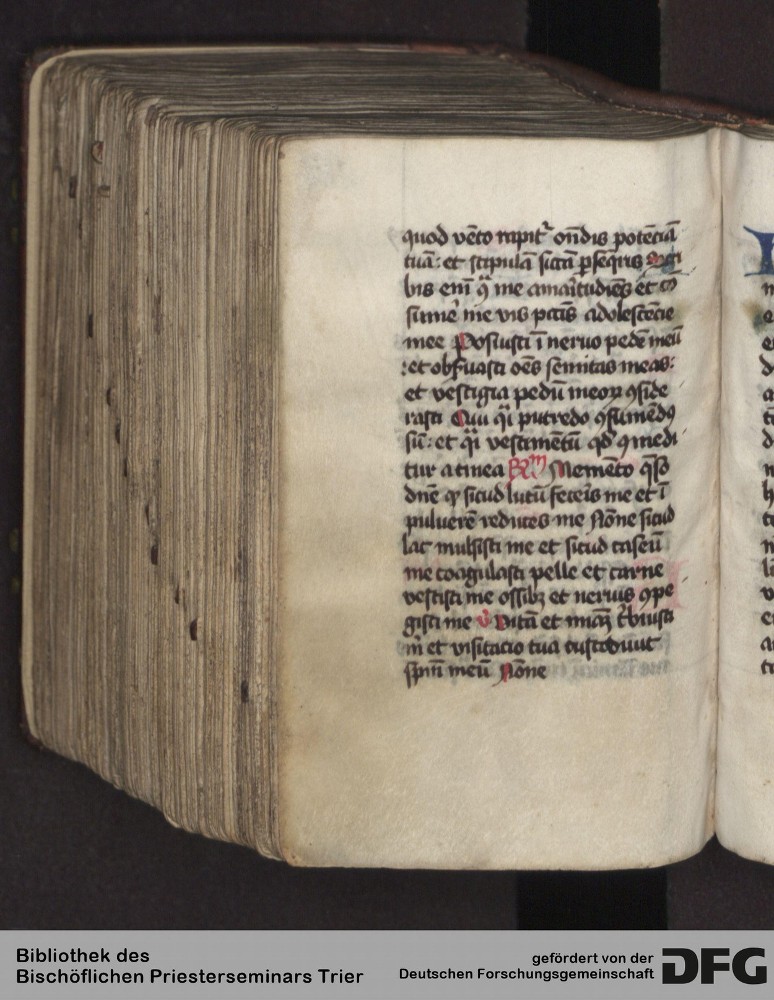 quod vēto rapit᷑ oñdis potēciā
tuā: et stipulā siccā ꝑseq̄ris Scͥ
bis enī ꝯ͛ me amaritudiēs et ꝯ
sume᷑ me vis pctīs adolescēcie
mee Posuisti ī neruo pedē meū
: et obẜuasti oēs semitas meas:
et vestigia pedū meoꝝ ꝯside
rasti Qui q̄i putredo ꝯsumēdꝰ
sū: et q̄i vestimētū qd̛ ꝯmedi
tur a tinea Rm Memēto q̄so
dnē ꝙ sicud lutū feceris me et ī
puluerē reduces me Nōne sicud
lac mulsisti me et sicud caseū
me coagulasti pelle et carne
vestisti me ossibꝫ et neruis ꝯpe
gisti me v̛ Vitā et miāꝫ t͛buisti
m̄ et visitacio tua custodiuit
spm̄ meū Nōne
Bibliothek des
Bischöflichen Priesterseminars Trier
gefördert von der
Deutschen Forschungsgemeinschaft
DFG